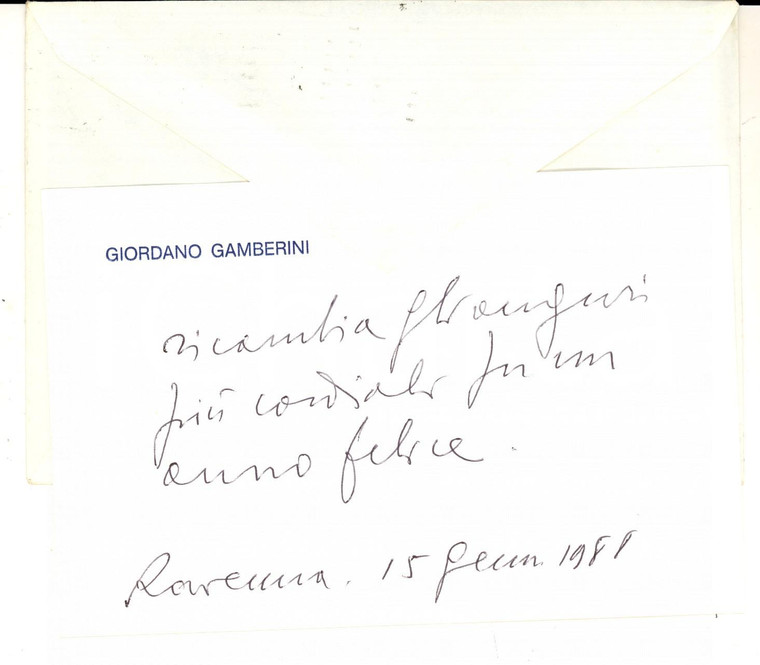 GIORDANO GAMBERINI
ricambia gli auguri
più cordiali per un
anno felice.
Ravenna. 15 Genn. 1988